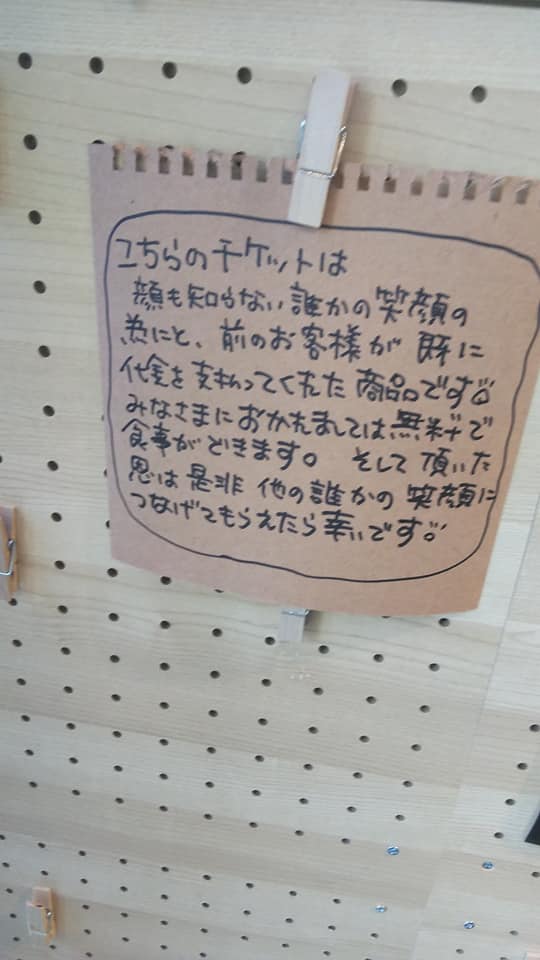 こちらのチケットは
顔も知らない誰かの笑顔の
為にと、前のお客様が既に
代金を支払ってくれた商品です。
みなさまにおかれましては無料で
食事ができます。 そして頂いた
恩は是非他の誰かの笑顔に
つなげてもらえたら幸いです。